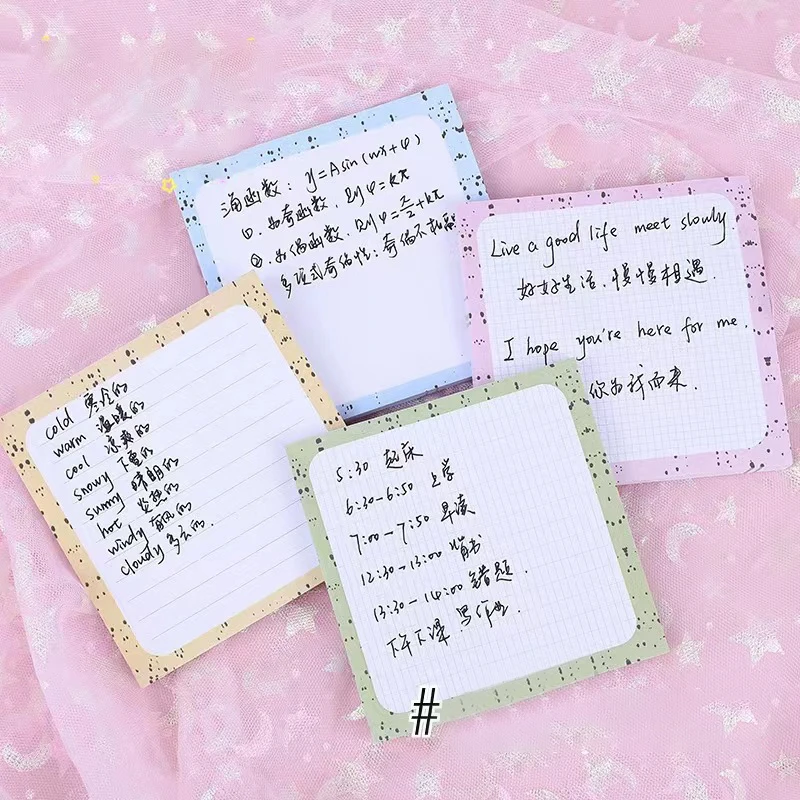 函数: y=Asin(wx+φ)
①. 如奇函数. 则φ=kπ
②. 如偶函数. 则φ=π/2+kπ
多项式奇偶性: 奇偶不
Live a good life meet slowly.
好好生活、慢慢相遇.
I hope you're here for me.
你为我而来.
cold 寒冷的
warm 温暖的
cool 凉爽的
snowy 下雪的
sunny 晴朗的
hot 炎热的
windy 有风的
cloudy 多云的.
5:30 起床
6:30-6:50 上学
7:00-7:50 早读
12:30-13:00 背书
13:30-14:00 错题.
下午下课 写作业.
#